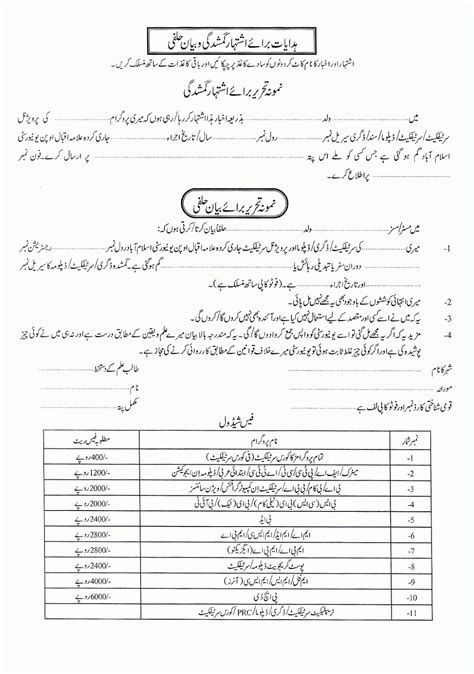 ہدایات برائے اشتہار گمشدگی و بیان حلفی
اشتہار اور اخبار کا نام کاٹ کر دونوں کو سادے کاغذ پر چپکائیں اور باقی کاغذات کے ساتھ منسلک کریں۔
نمونہ تحریر برائے اشتہار گمشدگی
میں ولد بذریعہ اخبار ہذا اشتہار کر رہا/رہی ہوں کہ میری پروگرام کی پرویژنل
سرٹیفکیٹ/سرٹیفکیٹ/ڈپلومہ/سند/ڈگری سیریل نمبر رول نمبر سال/تاریخ اجراء جاری کردہ علامہ اقبال اوپن یونیورسٹی
اسلام آباد گم ہو گئی ہے جس کسی کو ملے اس پتہ پر ارسال کرے۔ فون نمبر
پر اطلاع کرے۔
نمونہ تحریر برائے بیان حلفی
میں مسٹر/مسز ولد حلفاً بیان کرتا/کرتی ہوں کہ:
1- میری کی سرٹیفکیٹ/ڈگری/ڈپلومہ اور پرویژنل سرٹیفکیٹ جاری کردہ علامہ اقبال اوپن یونیورسٹی اسلام آباد رول نمبر رجسٹریشن نمبر
دوران سفر یا تبدیلی رہائش یا گم ہو گئی ہے۔ گمشدہ ڈگری/سرٹیفکیٹ/ڈپلومہ کا سیریل نمبر
اور تاریخ اجراء ہے۔ (فوٹو کاپی ساتھ منسلک ہے)۔
2- میری انتہائی کوششوں کے باوجود بھی یہ مجھے نہیں مل پائی۔
3- یہ کہ میں نے اسے کسی اور مقصد کے لیے استعمال نہیں کیا ہے اور آئندہ بھی نہیں کروں گا/گی۔
4- مزید یہ کہ اگر کبھی یہ مجھے مل گئی تو اسے یونیورسٹی کو واپس جمع کروا دوں گا/گی۔ یہ کہ مندرجہ بالا بیان میرے علم و یقین کے مطابق درست ہے اور نہ ہی میں نے کوئی چیز
پوشیدہ رکھی ہے اور اگر کوئی چیز غلط ثابت ہوئی تو یونیورسٹی میرے خلاف قوانین کے مطابق کارروائی کرنے کی مجاز ہے۔
شہر کا نام طالب علم کے دستخط
مورخہ نام
قومی شناختی کارڈ نمبر اور فوٹو کاپی لف ہے مکمل پتہ
فیس شیڈول
نمبر شمار نام پروگرام مطلوبہ فیس ریٹ
1- تمام پروگرامز کا کورس سرٹیفکیٹ (فی کورس سرٹیفکیٹ) 400/- روپے
2- میٹرک/ایف اے/پی ٹی سی/سی ٹی/اے ٹی ٹی سی/ابتدائی عربی/ڈپلومہ ان ایجوکیشن 1200/- روپے
3- بی اے/بی کام/بی ایل آئی ایس/کمپیوٹر گرافکس/ویژن سائنسز 2000/- روپے
4- بی ایس/بی ایس سی (ٹیلی کام)/بی اے (ٹیک)/بی آئی ٹی 2400/- روپے
5- بی ایڈ 2400/- روپے
6- ایم اے/ایم ایڈ/ایم ایس سی/ایم بی اے 2800/- روپے
7- ایم بی اے (ایگزیکٹو) 2800/- روپے
8- پوسٹ گریجویٹ ڈپلومہ/سرٹیفکیٹ 2200/- روپے
9- ایم فل/ایم ایس/ایم ایس سی (آنرز) 4000/- روپے
10- پی ایچ ڈی 6000/- روپے
11- ڈگری/ڈپلومہ/PRC/کورس سرٹیفکیٹ